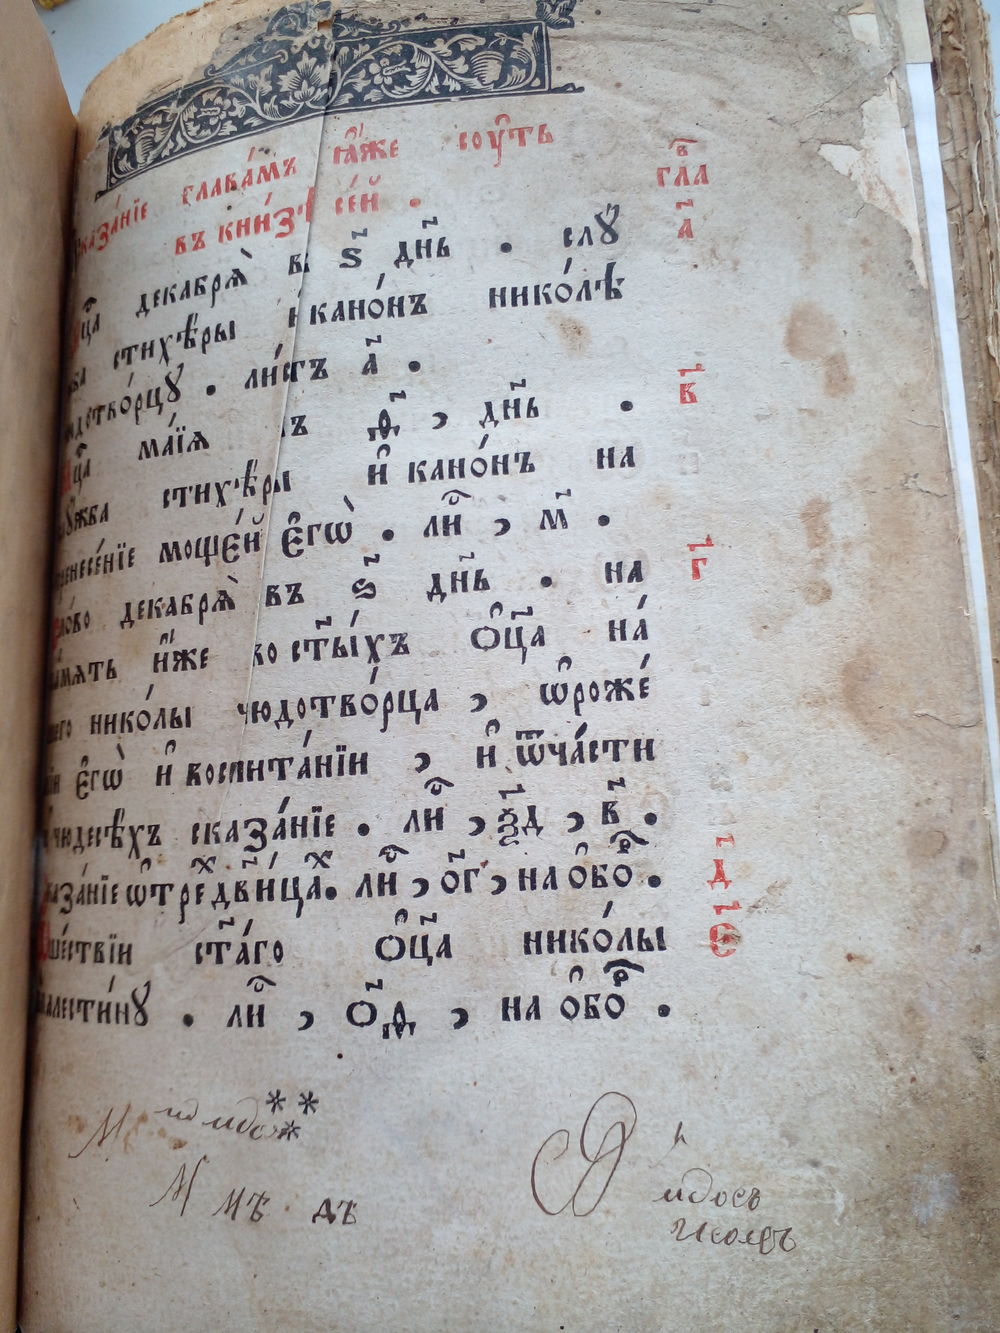 сказа́нїе глава́мъ ꙗ҆́же соу́ть в̾
въ кни́зѣ се́й . гла
мц҃а декабрѧ̀ въ ѕ҃ дн҃ь . слꙋ́ а҃
жба стихѣ́ры и҆ кано́нъ нико́лѣ
чюдотво́рцꙋ . ли́стъ а҃ .
мц҃а ма́їѧ въ ѳ҃ , дн҃ь . в҃
слꙋ́жба стихѣ́ры и҆ кано́нъ на
пренесе́нїе моще́й є҆гѡ̀ . ли҆ , м҃ .
сло́во декабрѧ̀ въ ѕ҃ дн҃ь . на г҃
па́мѧть и҆́же во ст҃ы́хъ о҆ц҃а на́
шего нико́лы чюдотво́рца , ѡ҆ роже́
нїи є҆гѡ̀ и҆ воспита́нїи , и҆ ѿча́сти
чюдесѣ́хъ сказа́нїе . ли҆ , ѯ҃д , в҃ .
сказа́нїе ѡ҆ трех̾ дв҃и́цах̾ . ли҆ , о҃г , на ѻ҆боро . д҃
ше́ствїи ст҃а́го о҆ц҃а нико́лы є҃
палести́нꙋ . ли҆ , о҃д , на ѻ҆боро .
* * *
М мъ дъ